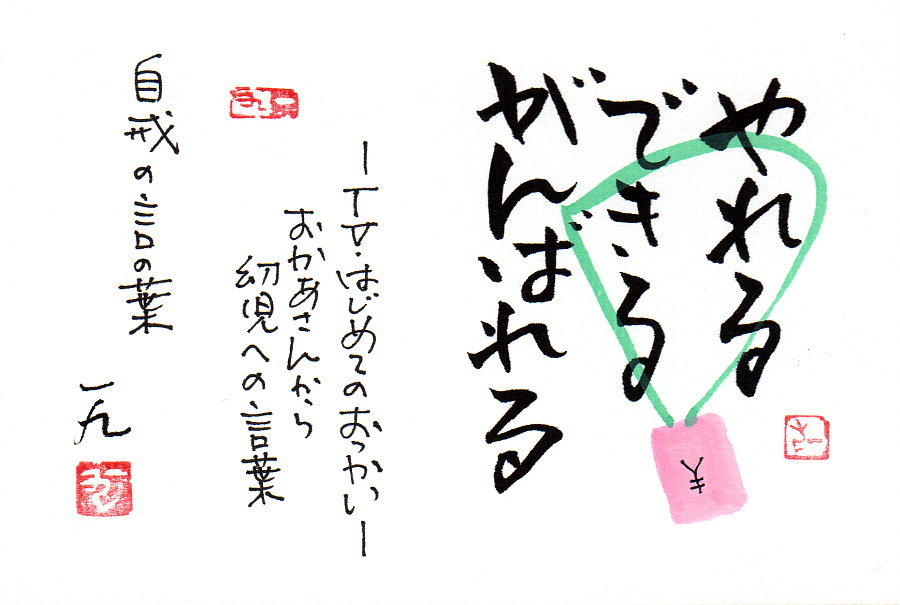 やれる
できる
がんばれる
¥
ーTV・はじめてのおつかいー
おかあさんから
幼児への言葉
自戒の言の葉
一九